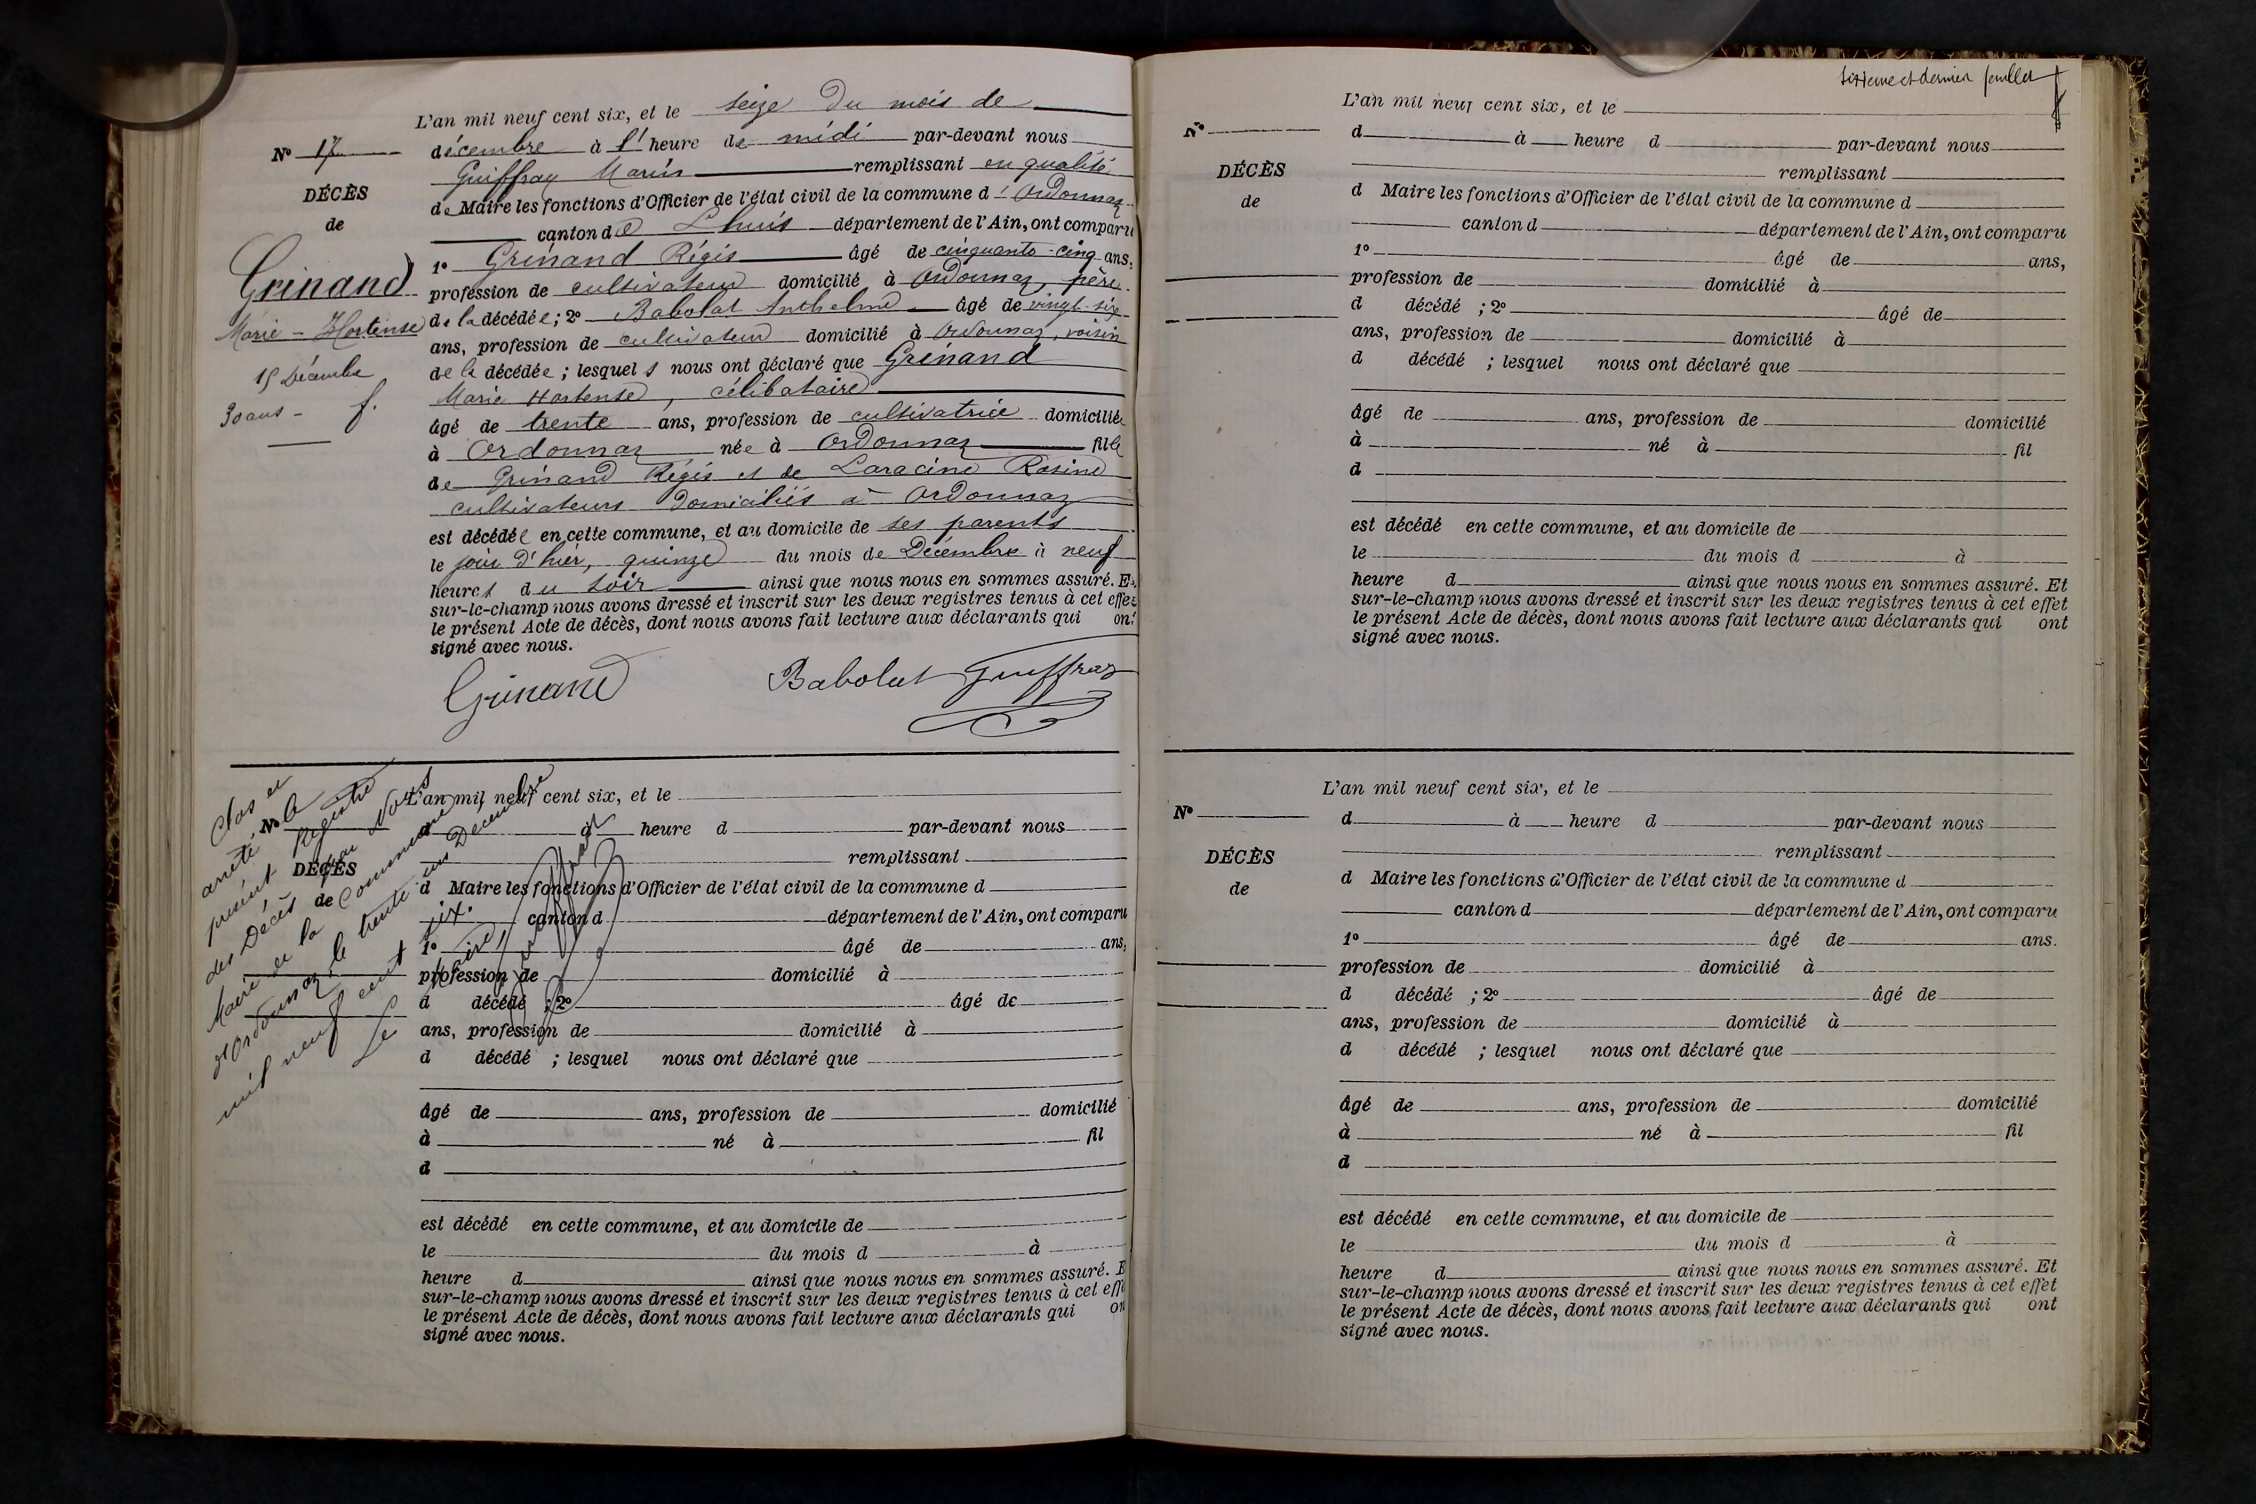 L'an mil neuf cent six, et le seize du mois de
No 17
décembre à l'heure de midi par-devant nous
Guiffray Marius remplissant en qualité
DÉCÈS
de Maire les fonctions d'Officier de l'état civil de la commune d'Ordonnaz
de
canton de Lhuis département de l'Ain, ont comparu
1o Grinand Régis âgé de cinquante-cinq ans,
Grinand
profession de cultivateur domicilié à Ordonnaz, père
Marie-Hortense
de la décédée; 2o Babolat Anthelme âgé de vingt-six
ans, profession de cultivateur domicilié à Ordonnaz, voisin
15 Décembre
de la décédée; lesquels nous ont déclaré que Grinand
30 ans - f.
Marie Hortense, célibataire
âgé de trente ans, profession de cultivatrice domiciliée
à Ordonnaz née à Ordonnaz fille
de Grinand Régis et de Laracine Rosine
cultivateurs domiciliés à Ordonnaz
est décédée en cette commune, et au domicile de ses parents
le jour d'hier, quinze du mois de Décembre à neuf
heures du soir ainsi que nous nous en sommes assuré. Et
sur-le-champ nous avons dressé et inscrit sur les deux registres tenus à cet effet
le présent Acte de décès, dont nous avons fait lecture aux déclarants qui ont
signé avec nous.
Grinand Babolat Guiffray
Clos et
arrêté le
présent Registre
des Décès par Nous
Maire de la Commune
d'Ordonnaz, le trente un Décembre
mil neuf cent six.
Le Maire,
Guiffray
L'an mil neuf cent six, et le
No
d à heure d par-devant nous
remplissant
DÉCÈS
d Maire les fonctions d'Officier de l'état civil de la commune d
de
canton d département de l'Ain, ont comparu
1o âgé de ans,
profession de domicilié à
d décédé ; 2o âgé de
ans, profession de domicilié à
d décédé ; lesquel nous ont déclaré que
âgé de ans, profession de domicilié
à né à fil
d
est décédé en cette commune, et au domicile de
le du mois d à
heure d ainsi que nous nous en sommes assuré. E
sur-le-champ nous avons dressé et inscrit sur les deux registres tenus à cet effe
le présent Acte de décès, dont nous avons fait lecture aux déclarants qui on
signé avec nous.
sixième et dernier feuillet
L'an mil neuf cent six, et le
No
d à heure d par-devant nous
remplissant
DÉCÈS
d Maire les fonctions d'Officier de l'état civil de la commune d
de
canton d département de l'Ain, ont comparu
1o âgé de ans,
profession de domicilié à
d décédé ; 2o âgé de
ans, profession de domicilié à
d décédé ; lesquel nous ont déclaré que
âgé de ans, profession de domicilié
à né à fil
d
est décédé en cette commune, et au domicile de
le du mois d à
heure d ainsi que nous nous en sommes assuré. Et
sur-le-champ nous avons dressé et inscrit sur les deux registres tenus à cet effet
le présent Acte de décès, dont nous avons fait lecture aux déclarants qui ont
signé avec nous.
L'an mil neuf cent six, et le
No
d à heure d par-devant nous
remplissant
DÉCÈS
d Maire les fonctions d'Officier de l'état civil de la commune d
de
canton d département de l'Ain, ont comparu
1o âgé de ans.
profession de domicilié à
d décédé ; 2o âgé de
ans, profession de domicilié à
d décédé ; lesquel nous ont déclaré que
âgé de ans, profession de domicilié
à né à fil
d
est décédé en cette commune, et au domicile de
le du mois d à
heure d ainsi que nous nous en sommes assuré. Et
sur-le-champ nous avons dressé et inscrit sur les deux registres tenus à cet effet
le présent Acte de décès, dont nous avons fait lecture aux déclarants qui ont
signé avec nous.